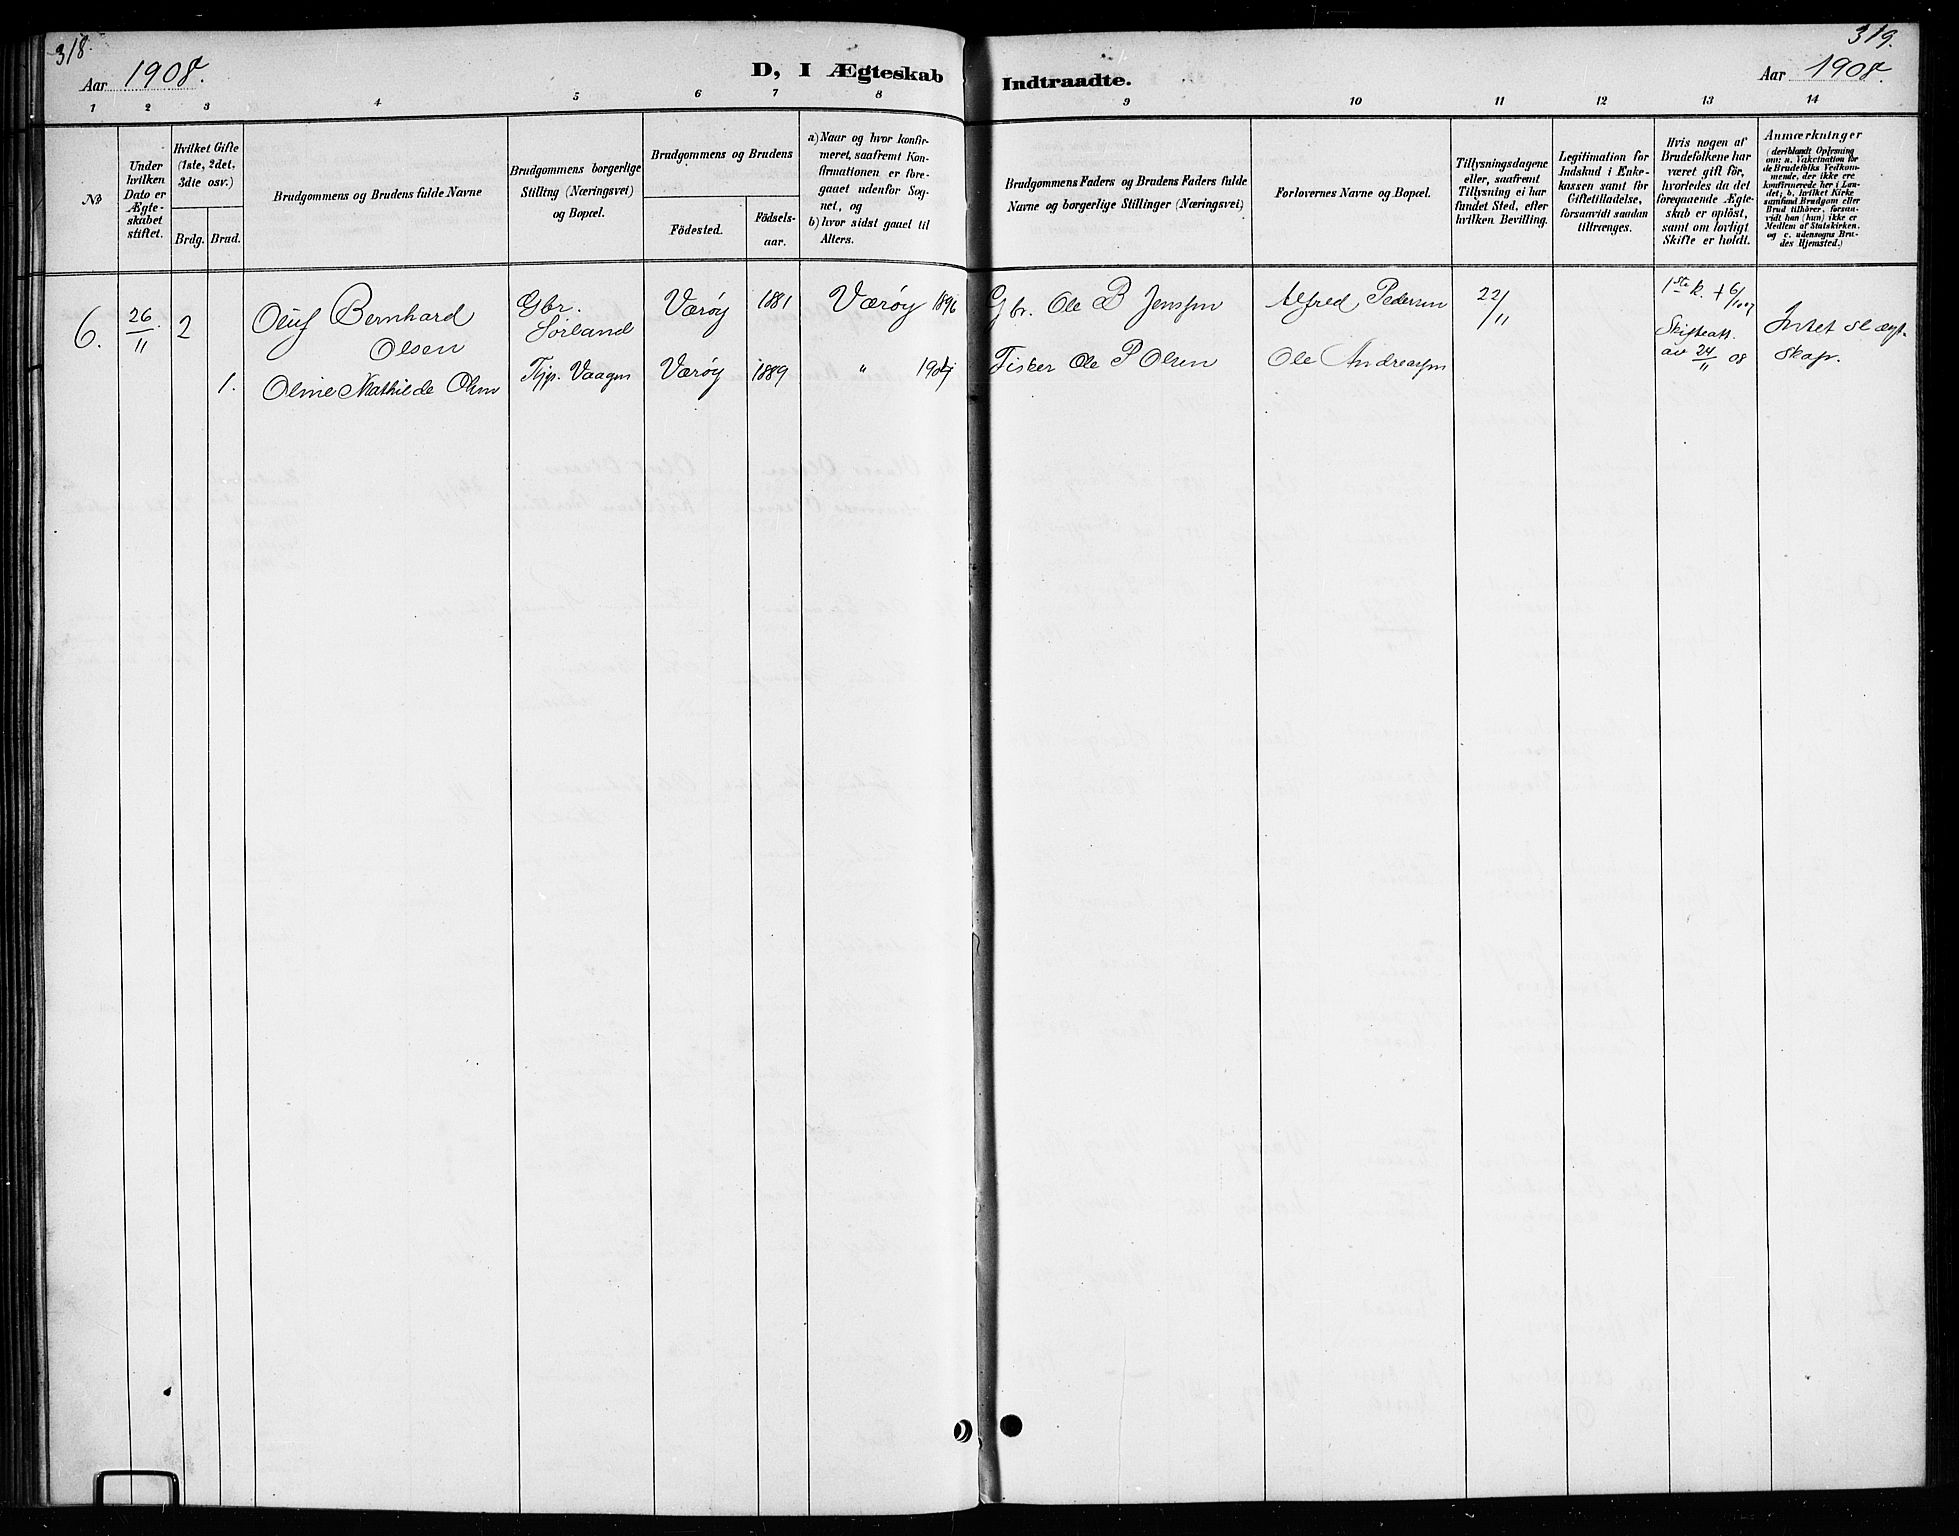 318.
319.
Aar 1908.
D, I Ægteskab Indtraadte.
Aar 1908.
1 2 3 4 5 6 7 8 9 10 11 12 13 14
No
Under
hvilken
Dato er
Ægte-
skabet
stiftet.
Hvilket Gifte
(1ste, 2det,
3die osv.)
Brdg. Brud.
Brudgommens og Brudens fulde Navne
Brudgommens borgerlige
Stilling (Næringsvei)
og Bopæl.
Brudgommens og Brudens
Födested.
Födsels-
aar.
a) Naar og hvor konfir-
meret, saafremt Kon-
firmationen er fore-
gaaet udenfor Sog-
net, og
b) hvor sidst gaaet til
Alters.
Brudgommens Faders og Brudens Faders fulde
Navne og borgerlige Stillinger (Næringsvei)
Forlovernes Navne og Bopæl.
Tillysningsdagene
eller, saafremt
Tillysning ei har
fundet Sted, efter
hvilken Bevilling.
Legitimation for
Indskud i Enke-
kassen samt for
Giftetilladelse,
forsaavidt saadan
tiltrænges.
Hvis nogen af
Brudefolkene har
været gift för,
hvorledes da det
foregaaende Ægte-
skab er oplöst,
samt om lovligt
Skifte er holdt.
Anmærkninger
(deriblandt Oplysning
om: a. Vakcination for
de Brudefolks Vedkom-
mende, der ikke ere
konfirmerede her i Lan-
det; b. hvilket Kirke
samfund Brudgom eller
Brud tilhörer, forsaa-
vidt han (hun) ikke er
Medlem af Statskirken.
og c. udensogns Bru-
des Hjemsted.)
6. 26/11 2 Oluf Bernhard Gbr. Værøy 1881 Værøy 1896 Gbr. Ole B Jenssen Alfred Pedersen 22/11 1ste k. + 6/ 1907
Olsen Sørland Skifteatt. Intet slægt-
av 24/11 08 skap.
1. Oline Mathilde Olsen Tjp. Vaagen Værøy 1889 " Fisker Ole P Olsen Ole Andreassen